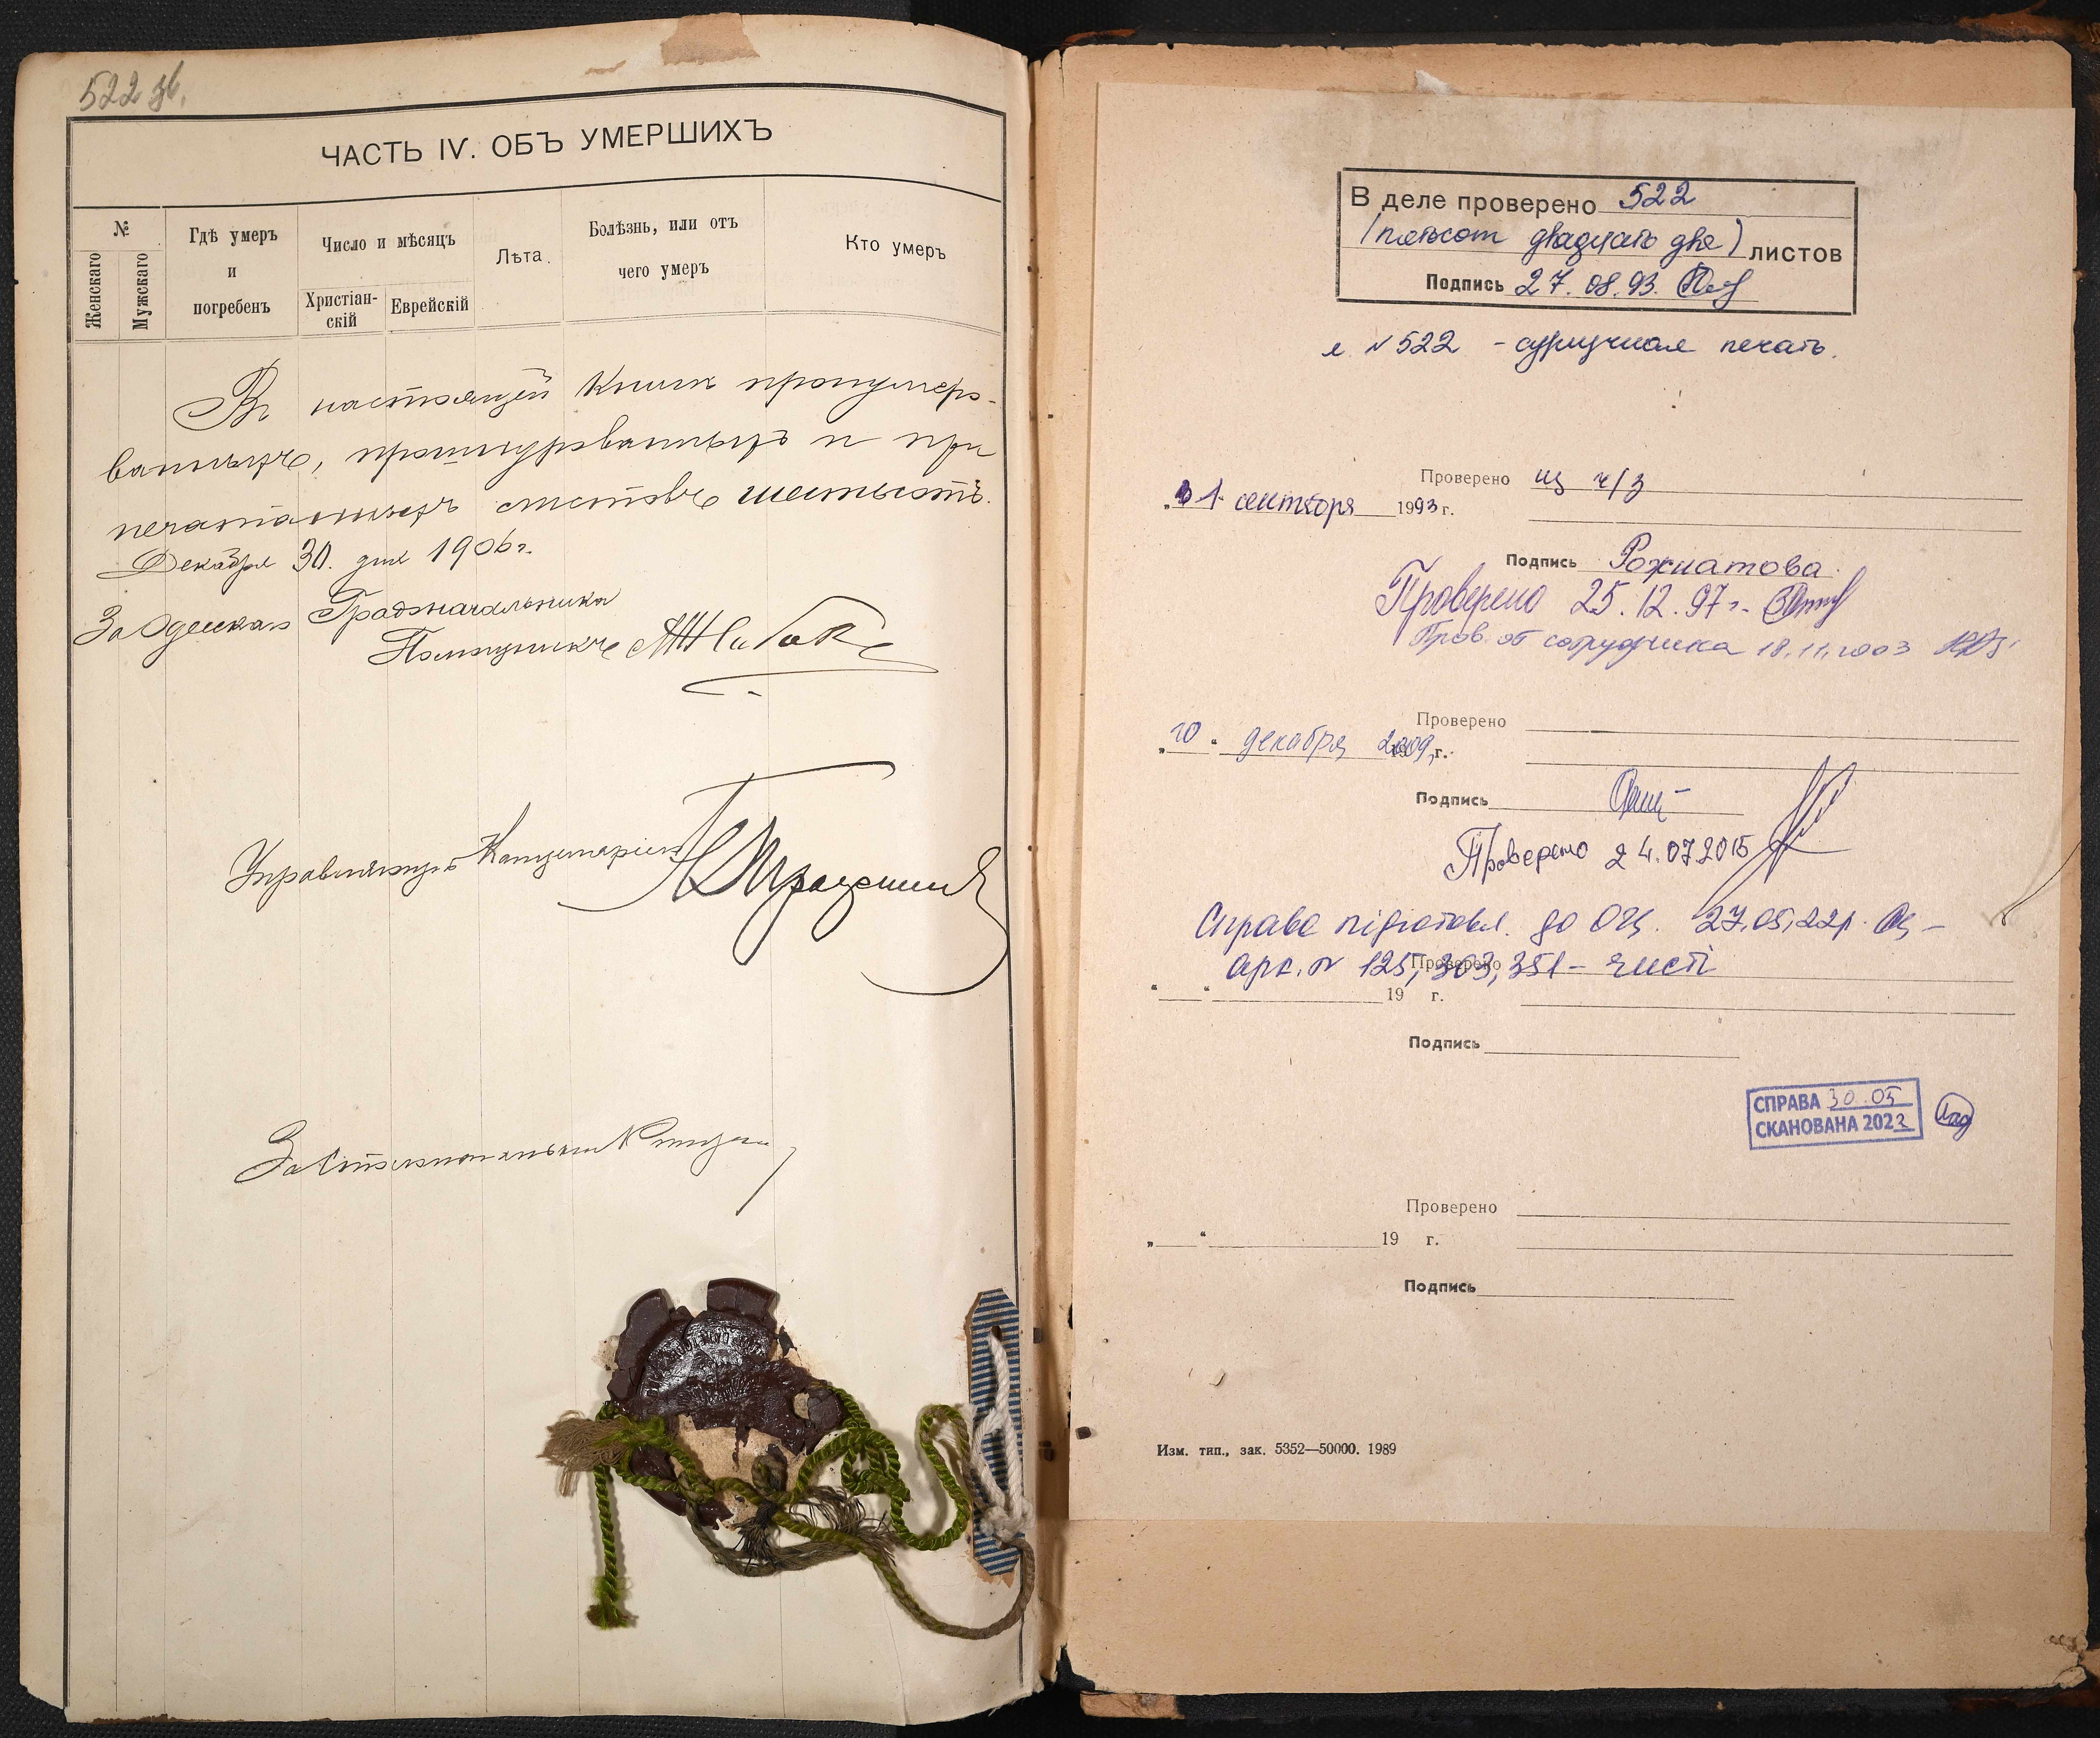 522 зв.
ЧАСТЬ IV. ОБЪ УМЕРШИХЪ
№
Женскаго
Мужскаго
Гдѣ умеръ
и
погребенъ
Число и мѣсяцъ
Христіан-
скій
Еврейскій
Лѣта.
Болѣзнь, или отъ
чего умеръ
Кто умеръ
Въ настоящей книгѣ пронумеро-
ванныхъ, прошнурованныхъ и при
печатанныхъ листовъ шестьсотъ.
Декабря 30 дня 1906 г.
За Одесскаго Градоначальника
Помощникъ
Управляющій Канцеляріею
За
В деле проверено 522
(пятьсот двадцать два) листов
Подпись 27.08.93.
л. №522 - сургучная печать.
Проверено из ч/з
„1 сентября 1993 г.
Подпись Рожнатова
Проверено 25.12.97 г.
Пров. от сотрудника 18.11.2003
Проверено
„10“ декабря 2009 г.
Подпись
Проверено 24.07.2015
Справа підготовл. до ОЦ. 27.05.22р.
арк. № 125, 303, 351 - чисті
Проверено
„ “ 19 г.
Подпись
СПРАВА 30.05
СКАНОВАНА 2022
Проверено
„ “ 19 г.
Подпись
Изм. тип., зак. 5352—50000. 1989